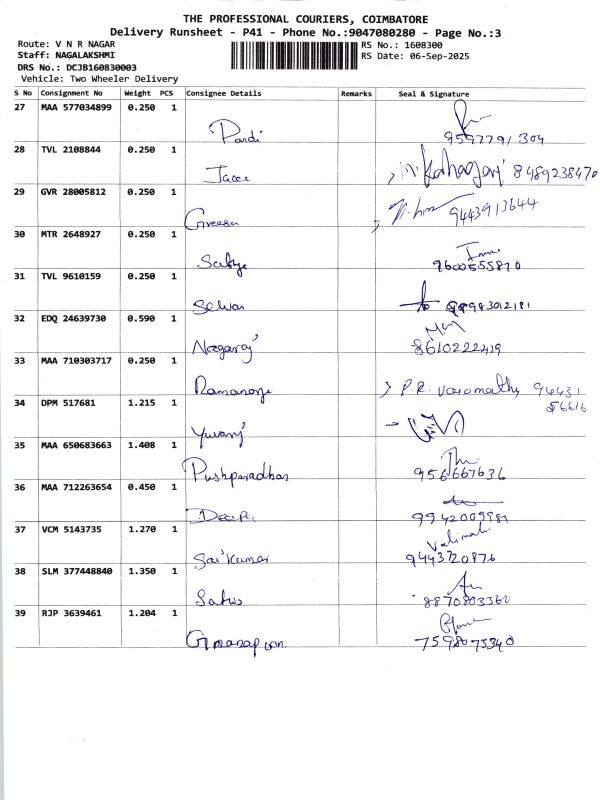 THE PROFESSIONAL COURIERS, COIMBATORE
Delivery Runsheet - P41 - Phone No.:9047080280 - Page No.:3
Route: V N R NAGAR
Staff: NAGALAKSHMI
DRS No.: DCJB160830003
Vehicle: Two Wheeler Delivery
RS No.: 1608300
RS Date: 06-Sep-2025
S No Consignment No Weight PCS Consignee Details Remarks Seal & Signature
27 MAA 577034899 0.250 1
Pandi 9597791304
28 TVL 2108844 0.250 1
8489238470
29 GVR 28005812 0.250 1
9443913644
30 MTR 2648927 0.250 1
9600555870
31 TVL 9610159 0.250 1
Selvan
32 EDQ 24639730 0.590 1
Nagaraj 8610222419
33 MAA 710303717 0.250 1
P.R. 94431
56616
34 DPM 517681 1.215 1
Yuvaraj
35 MAA 650683663 1.408 1
956667636
36 MAA 712263654 0.450 1
Deepa
37 VCM 5143735 1.270 1
Sai Kumar 9443720876
38 SLM 377448840 1.350 1
39 RJP 3639461 1.204 1
7598075340